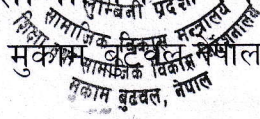 लुम्बिनी प्रदेश
सामाजिक विकास मन्त्रालय
शिक्षा
मुकाम बुटवल नेपाल
सामाजिक विकास
मुकाम बुटवल, नेपाल